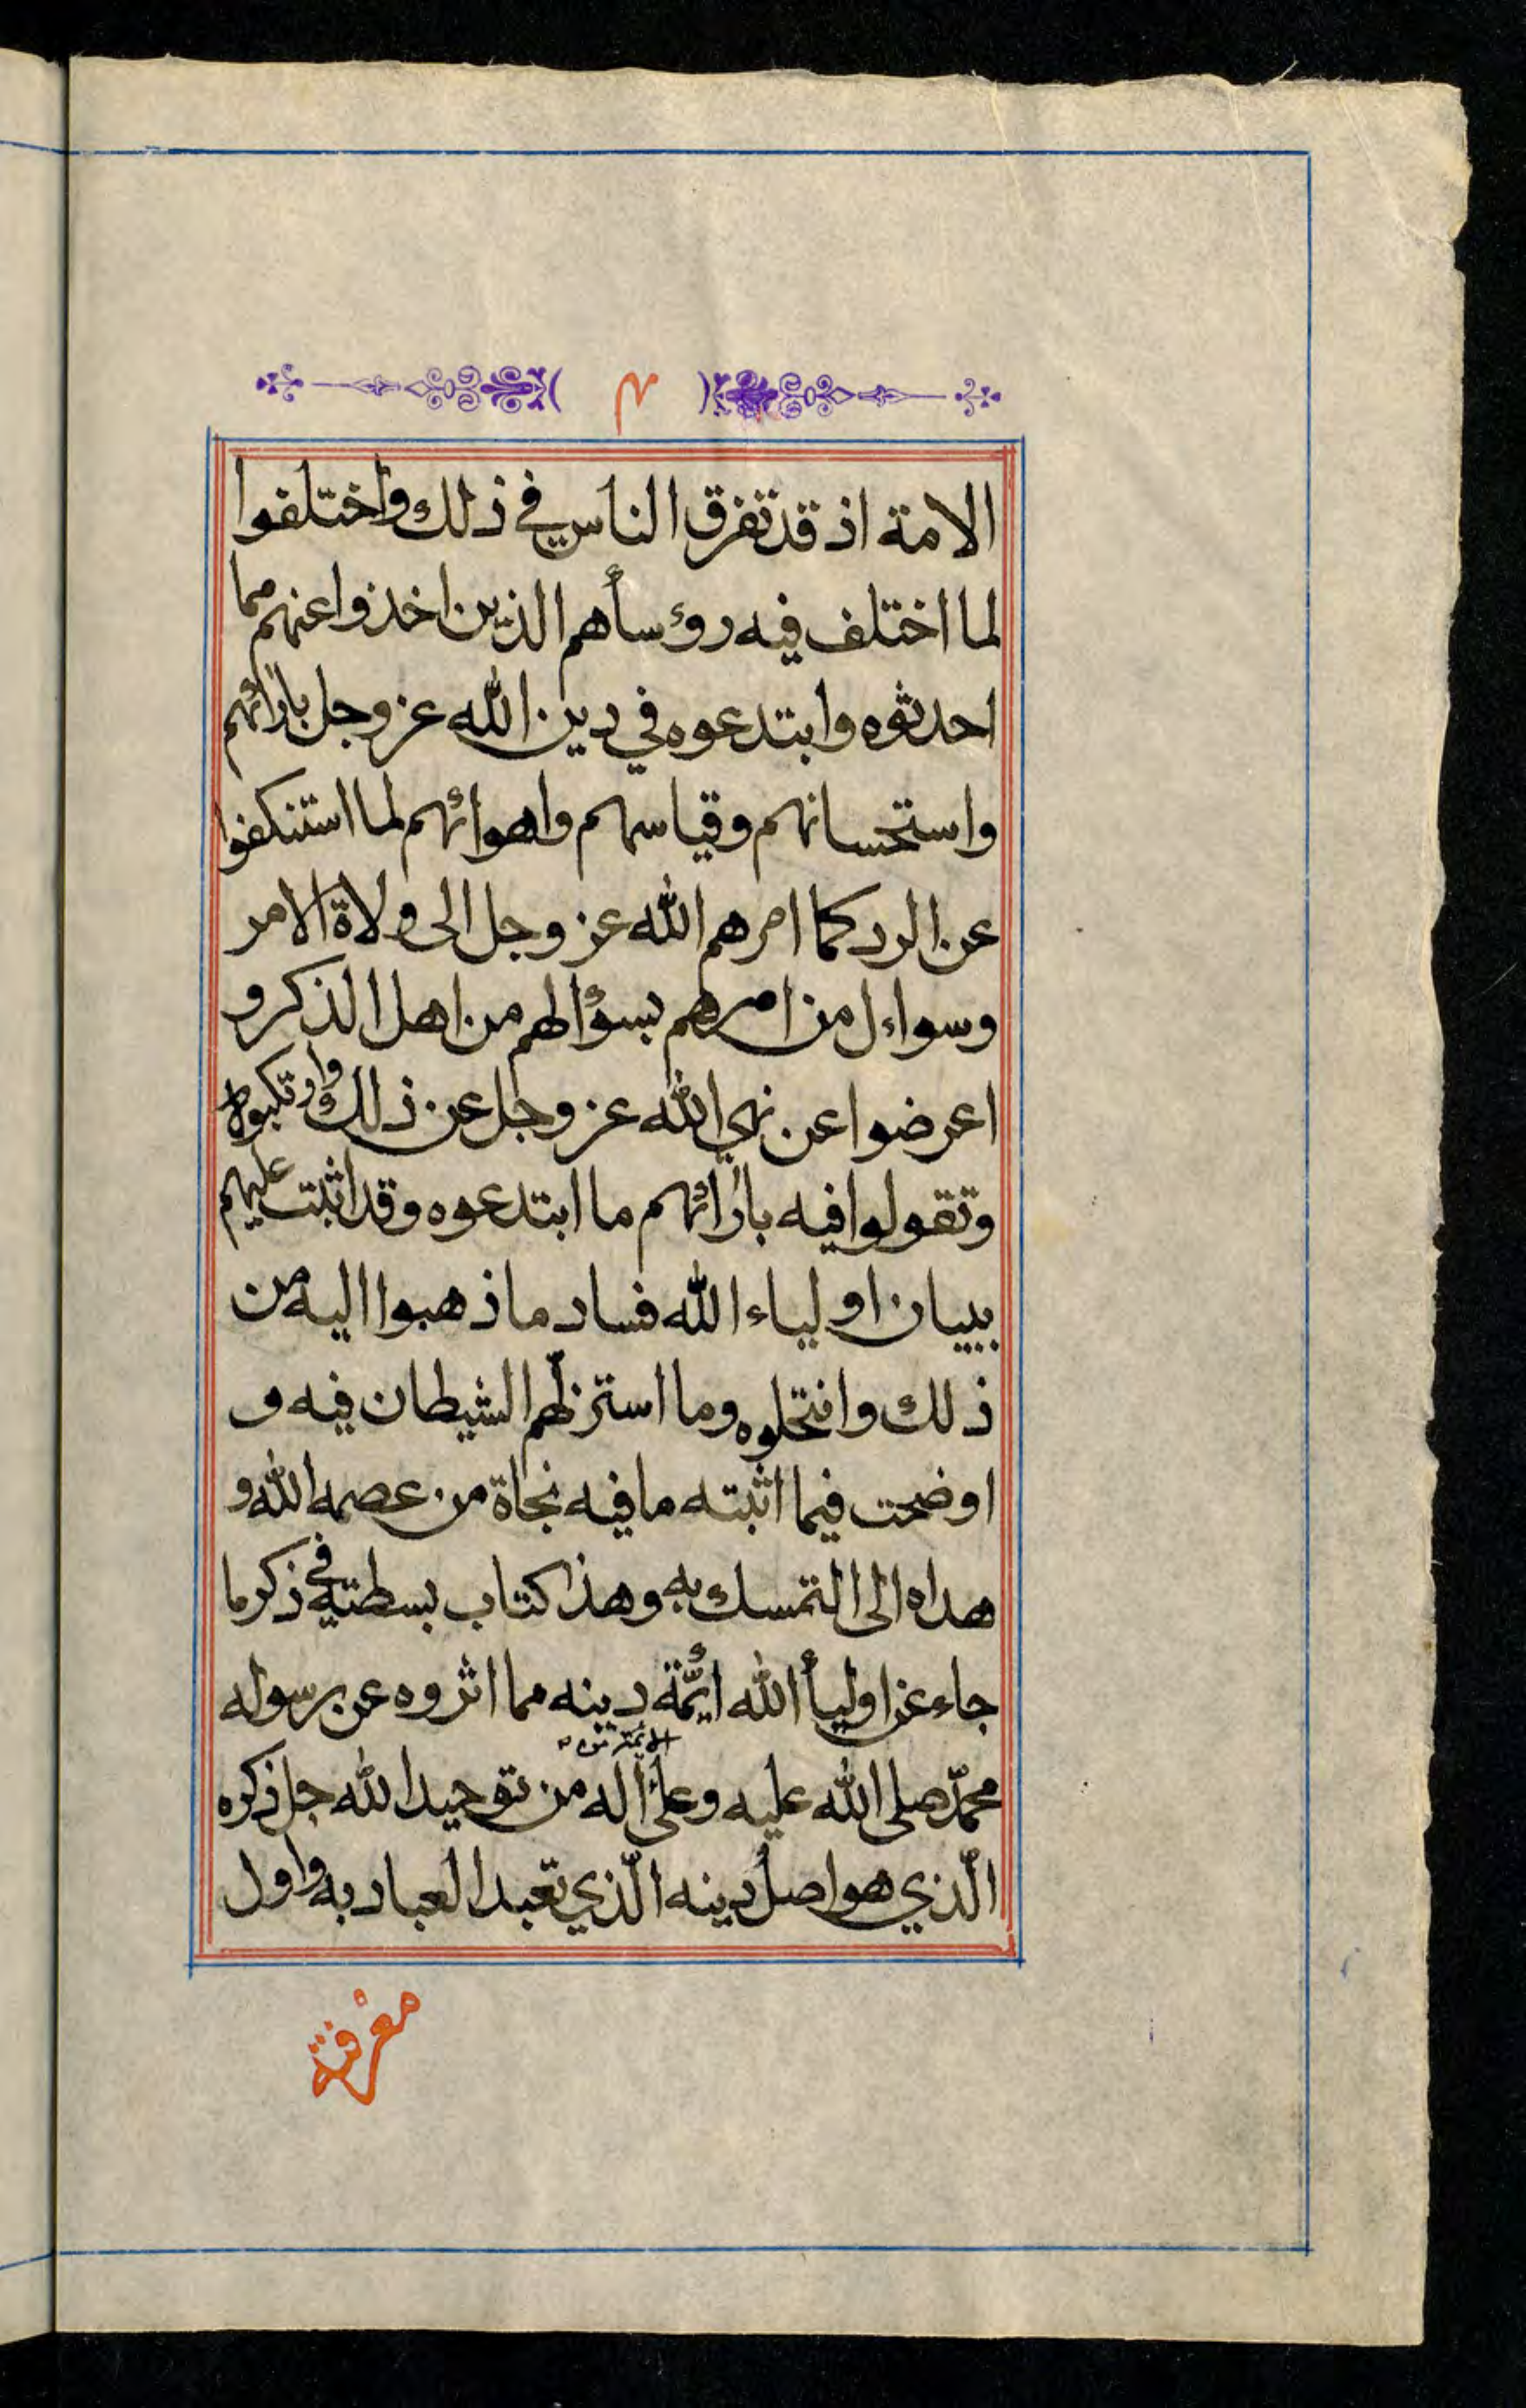 ٣
الامة اذ قد تفرق الناس في ذلك واختلفوا
لما اختلف فيه رؤسأهم الذين اخذوا عنهم مما
احدثوه وابتدعوه في دين الله عز وجل بارائهم
واستحسانهم وقياسهم واهوائهم لما استنكفوا
عن الرد كما امرهم الله عز وجل الى ولاة الامر
وسواءل من امرهم بسؤالهم من اهل الذكر و
اعرضوا عن نهي الله عز وجل عن ذلك
وتقولوا فيه بارائهم ما ابتدعوه وقد اثبت عليهم
ببيان اولياء الله فساد ما ذهبوا اليه من
ذلك وانتحلوه وما استزلّهم الشيطان فيه و
اوضحت فيما اثبته ما فيه نجاة من عصمه الله و
هداه الى التمسك به وهذا كتاب بسطته في ذكر ما
جاء عن اوليأ الله ايمّة دينه مما اثروه عن رسوله
محمدّ صلى الله عليه وعلى اله من توحيد الله جل ذكره
الّذي هو اصل دينه الّذي تعبد العباد به واول
معرفته